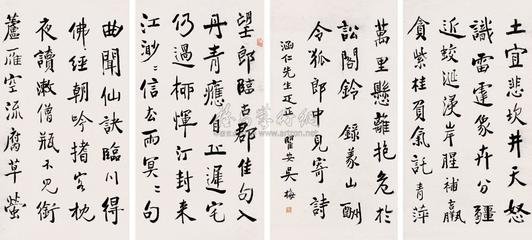 土宜悲坎井天怒
識雷霆象卉分疆
近蛟涎浸岸腥補羸
貪紫桂負氣託青萍
萬里懸離抱危於
訟閣鈴 錄義山酬
令狐郎中見寄詩
涵仁先生疋正 瞿安吳梅
望郎臨古郡佳句入
丹青應自丘遲宅
仍過柳惲汀封來
江渺〻信去雨冥〻句
曲聞仙訣臨川得
佛經朝吟搘客枕
夜讀漱僧瓶不見銜
蘆雁空流腐草螢